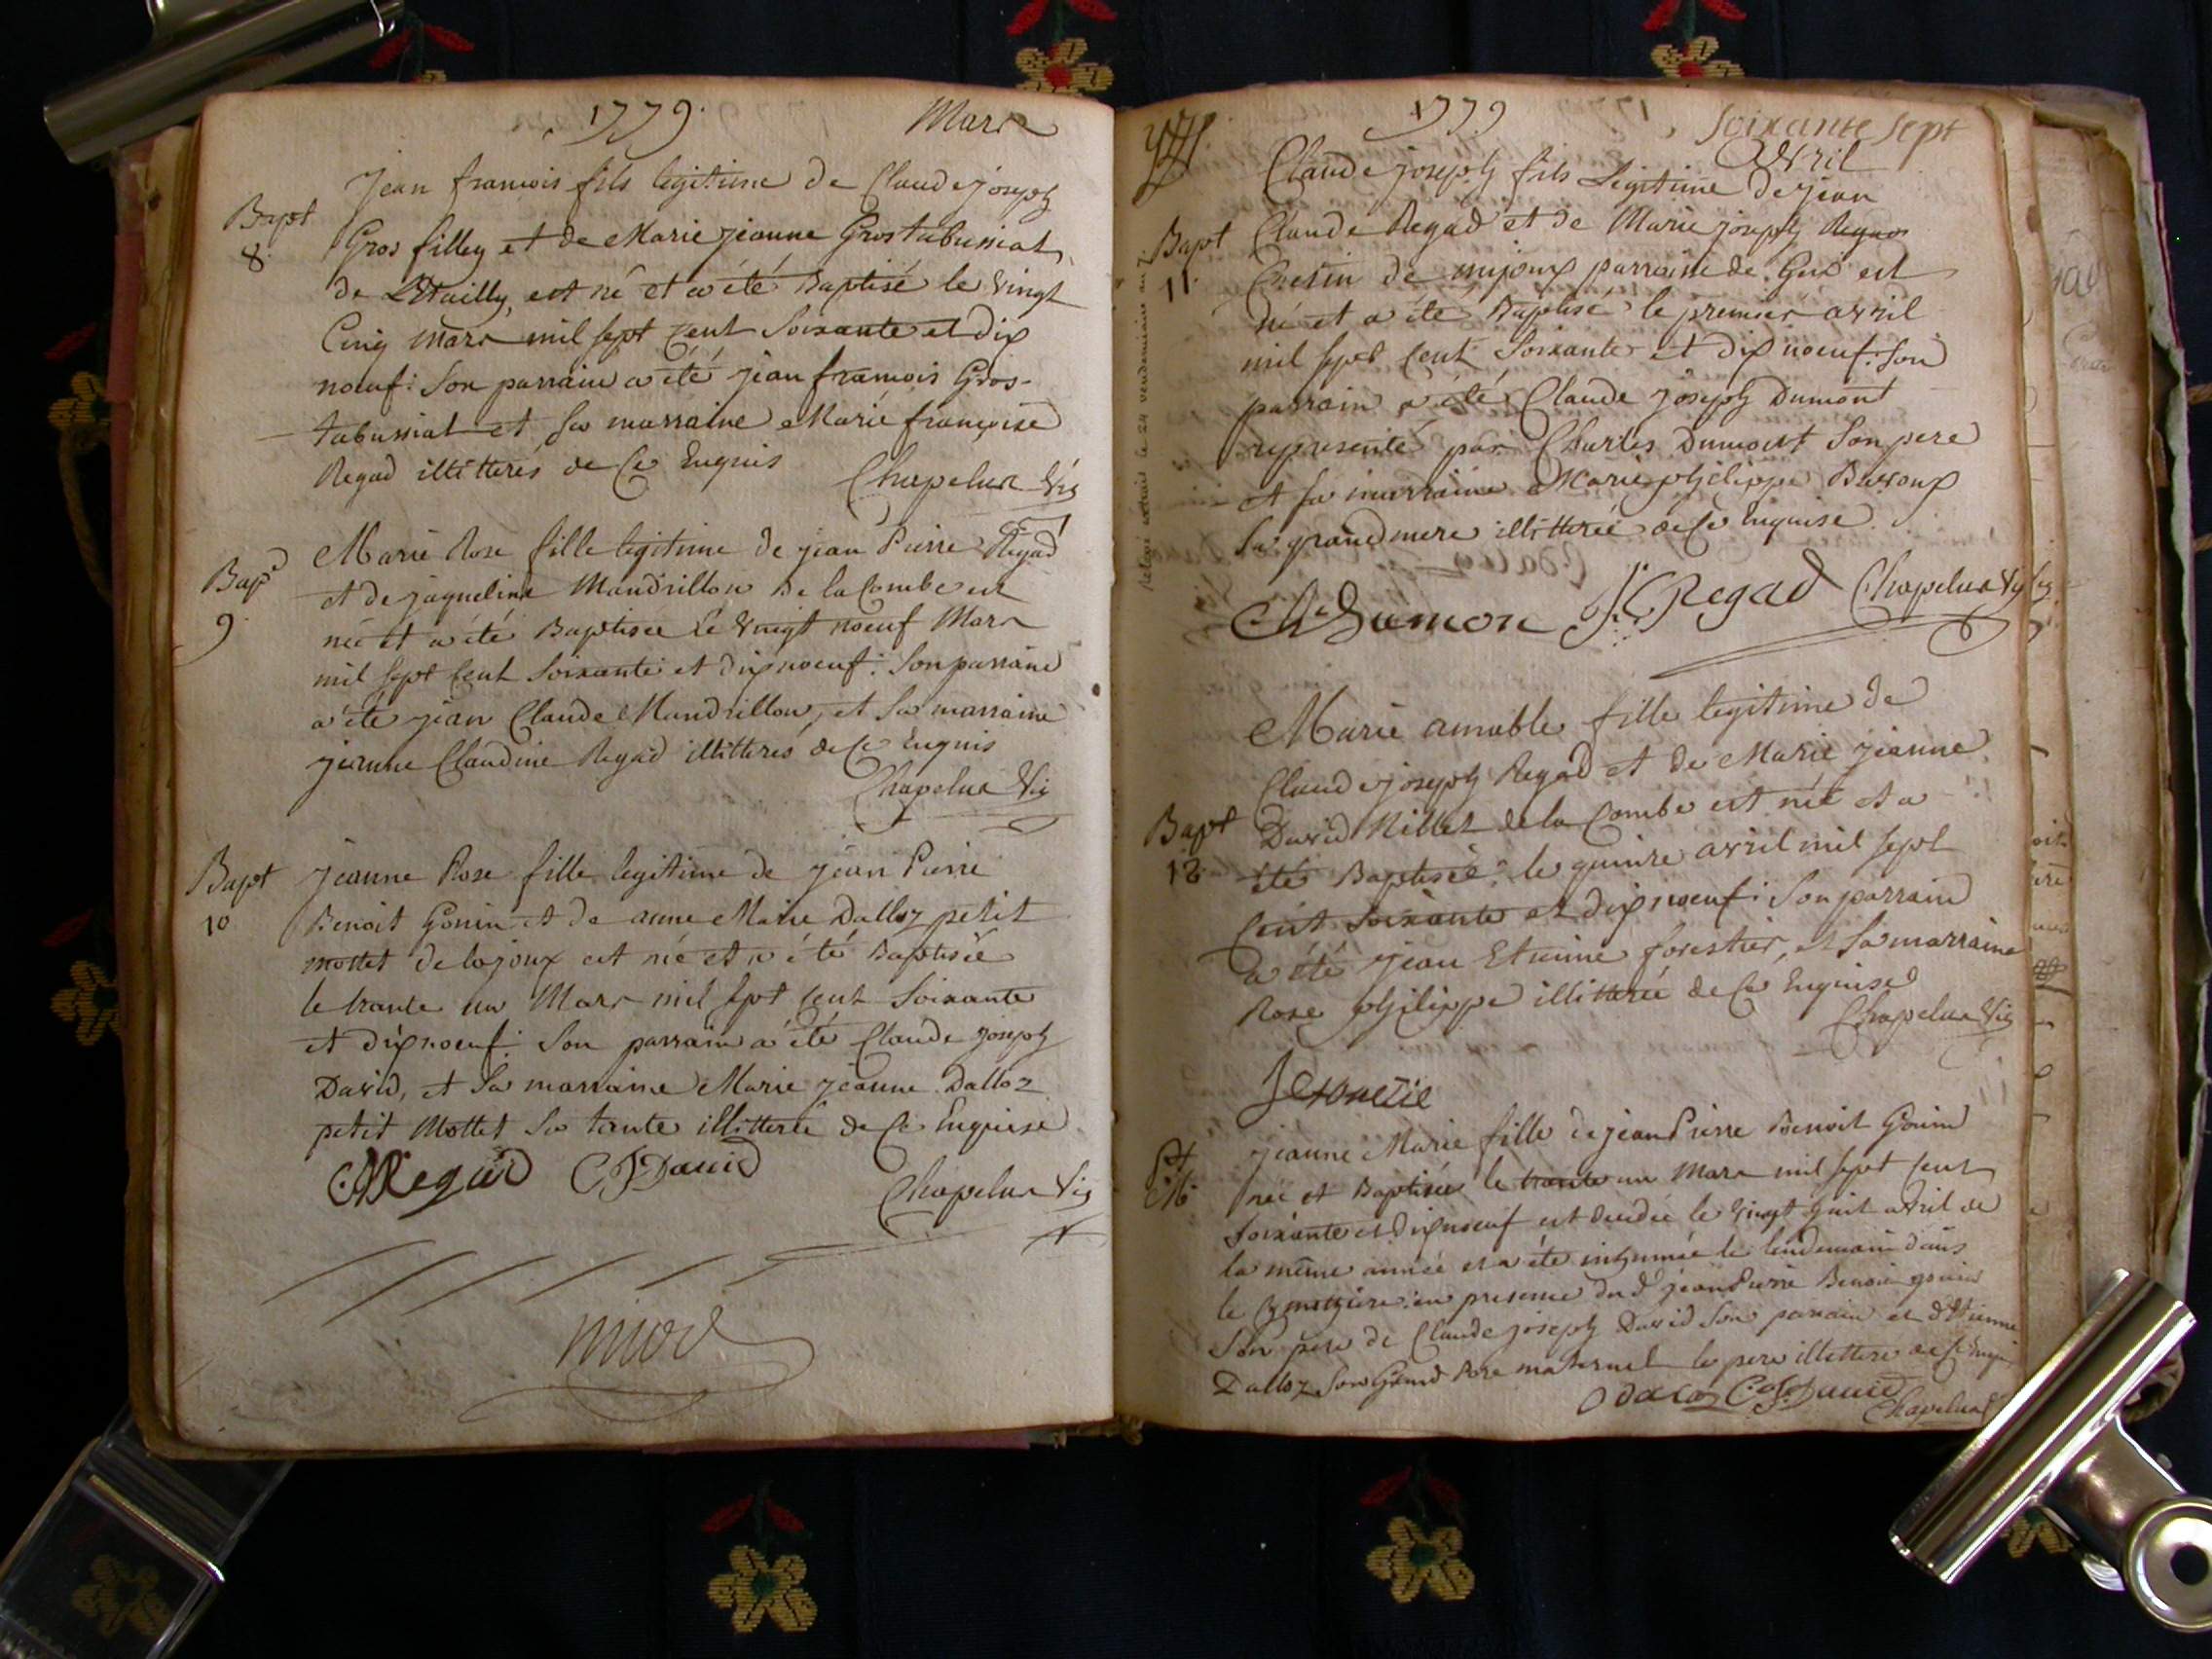 1779. Mars
Jean françois fils legitime de Claude joseph
Bapt
8.
Gros filley et de Marie jeanne Gros tabussiat
de L'Etailly, est né et a été Baptisé le vingt
Cinq mars mil sept cent Soixante et dix
noeuf: Son parrain a été jean françois Gros-
tabussiat et sa marraine Marie françoise
Regad illitterés de ce Enquis
Chapelux Vic
Marie Rose fille legitime de jean Pierre Regad
Bapt
9.
et de jaqueline Mandrillon de la Combe est
née et a été Baptisée le vingt noeuf Mars
mil sept cent Soixante et dix noeuf: Son parrain
a été jean Claude Mandrillon, et Sa marraine
jeanne Claudine Regad illitterés de ce Enquis
Chapelux Vic
Bapt
10
jeanne Rose fille legitime de jean Pierre
Benoit Gonin et de anne Marie Dalloz petit
mottet de lajoux est née et a été Baptisée
le trante un Mars mil sept cent Soixante
et dix noeuf: Son parrain a été Claude joseph
David, et Sa marraine Marie jeanne Dalloz
petit Mottet Sa tante illitterée de ce Enquise
Regad C J David
Chapelux Vic
1779 Soixante sept
Avril
Claude joseph fils Legitime de jean
Bapt
11.
Claude Regad et de Marie joseph Regad
de mijoux parroisse de Gex est
né et a été Baptisé le premier avril
mil sept cent Soixante et dix noeuf. Son
parrain a été Claude joseph Dumont
representé par Charles Dumont Son pere
et sa marraine Marie philippe
Sa grand mere illitterée de ce Enquise
Dumon J C Regad Chapelux Vic
Marie amable fille legitime de
Claude joseph Regad et de Marie jeanne
Bapt
12.
David Millet de la Combe est née et a
été Baptisée le quinze avril mil sept
cent Soixante et dix noeuf: Son parrain
a été jean Etienne forestier, et Sa marraine
Rose philippe illitterée de ce Enquise
Chapelux Vic
jeanne Marie fille de jean Pierre Benoit Gonin
née et Baptisée le trante un Mars mil sept cent
Soixante et dix noeuf est decedée le vingt huit avril de
la même année et a été inhumée le lendemain dans
le cymetiere en presence du d' jean Pierre Benoit gonin
Son pere de Claude joseph David Son parrain et d'Etienne
Dalloz Son Grand Pere maternel le pere illettere de ce
C. J. David Chapelux